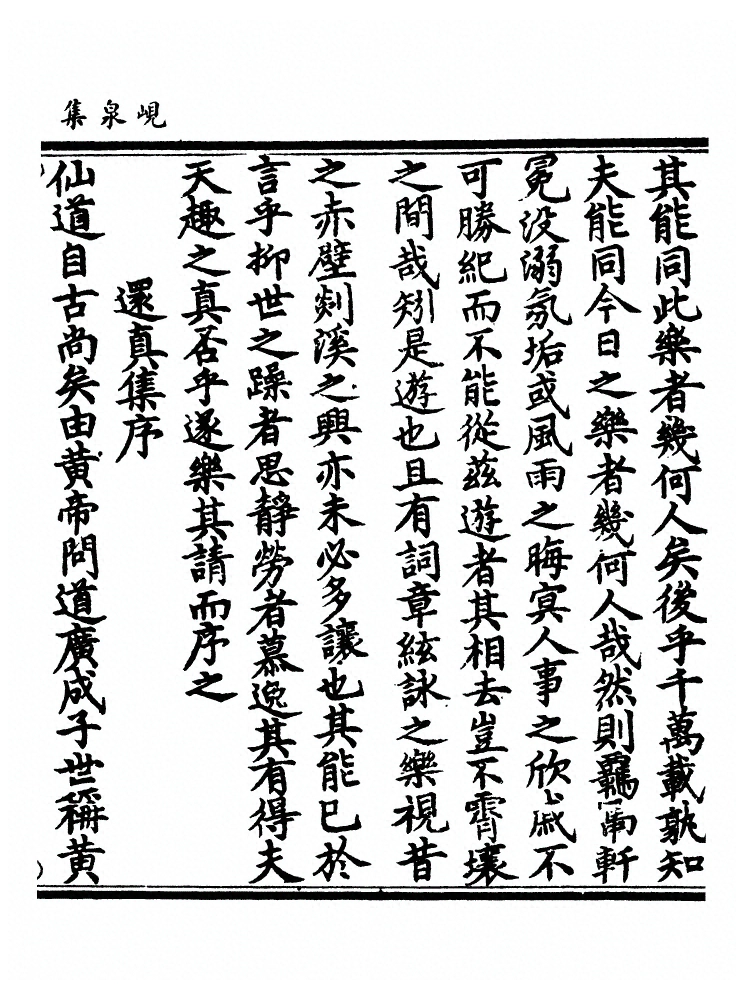 峴泉集
其能同此樂者幾何人矣後乎千萬載孰知
夫能同今日之樂者幾何人哉然則羈鬳軒
冕没溺氛垢或風雨之晦冥人事之欣戚不
可勝紀而不能從茲遊者其相去豈不霄壤
之間哉矧是遊也且有詞章絃詠之樂視昔
之赤壁剡溪之興亦未必多讓也其能已於
言乎抑世之躁者思靜勞者慕逸其有得夫
天趣之真否乎遂樂其請而序之
還真集序
仙道自古尚矣由黄帝問道廣成子世稱黄